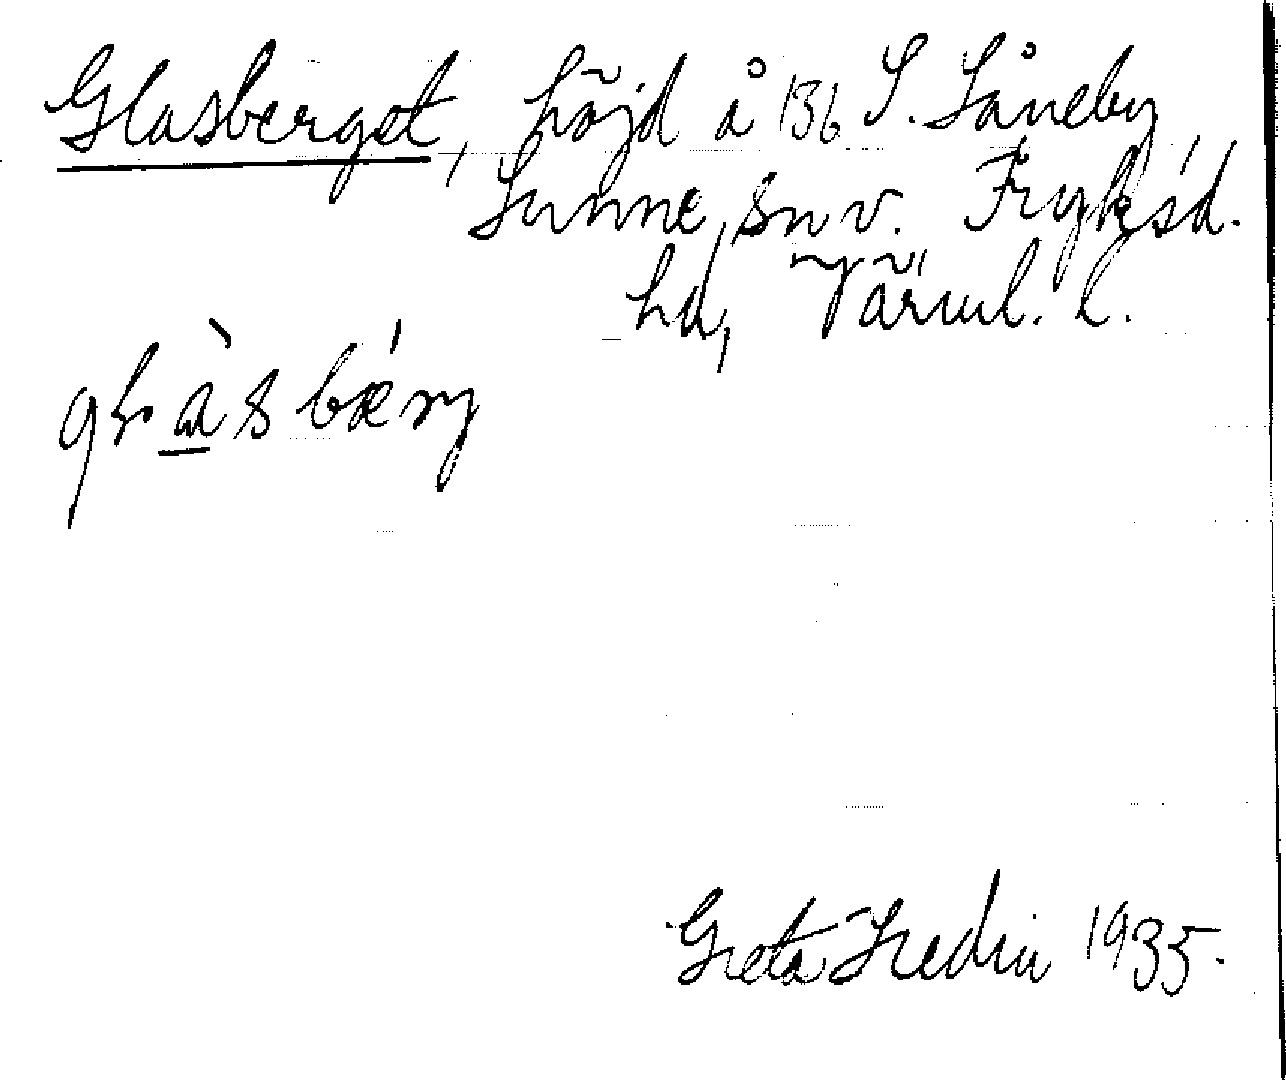 Glasberget, höjd å 136 S. Såneby
Sunne sn v. Fryksd.
hd, Värml. l.
glàsbǽrg
Greta Hedin 1935.